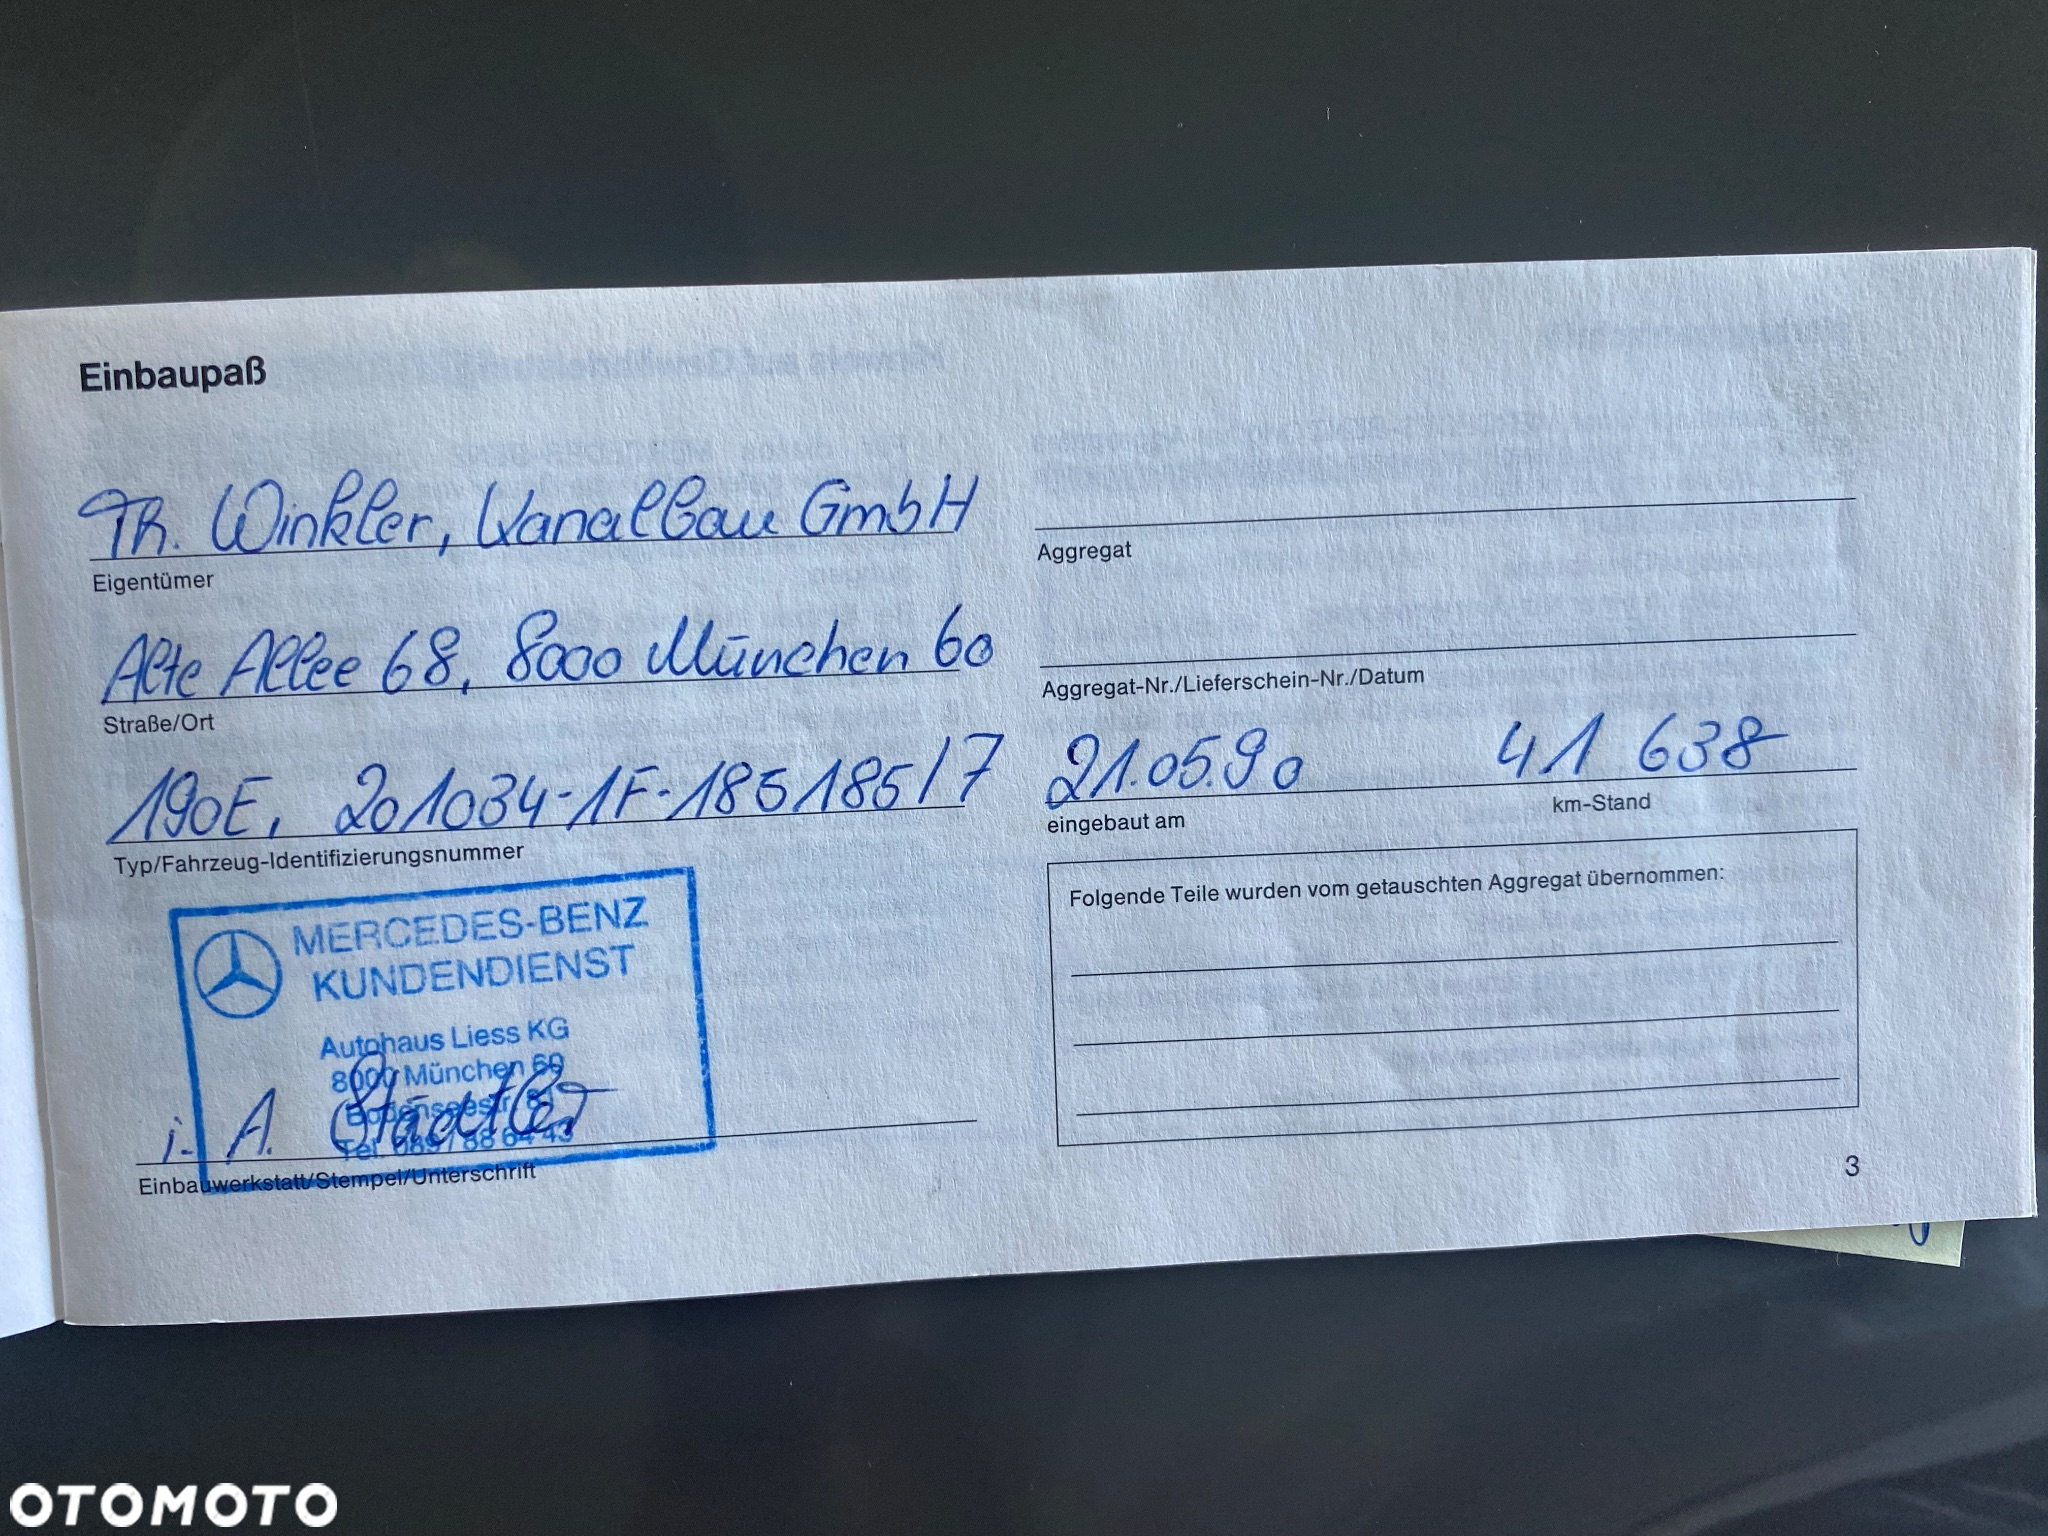 Einbaupaß
Th. Winkler, Kanalbau GmbH
Eigentümer
Alte Allee 68, 8000 München 60
Straße/Ort
190E, 201034-1F-185185/7
Typ/Fahrzeug-Identifizierungsnummer
MERCEDES-BENZ
KUNDENDIENST
Autohaus Liess KG
8000 München 60
Bodenseestr.
Tel. 089/88 64 43
i. A.
Einbauwerkstatt/Stempel/Unterschrift
Aggregat
Aggregat-Nr./Lieferschein-Nr./Datum
21.05.90 41 638
eingebaut am km-Stand
Folgende Teile wurden vom getauschten Aggregat übernommen:
3
OTOMOTO